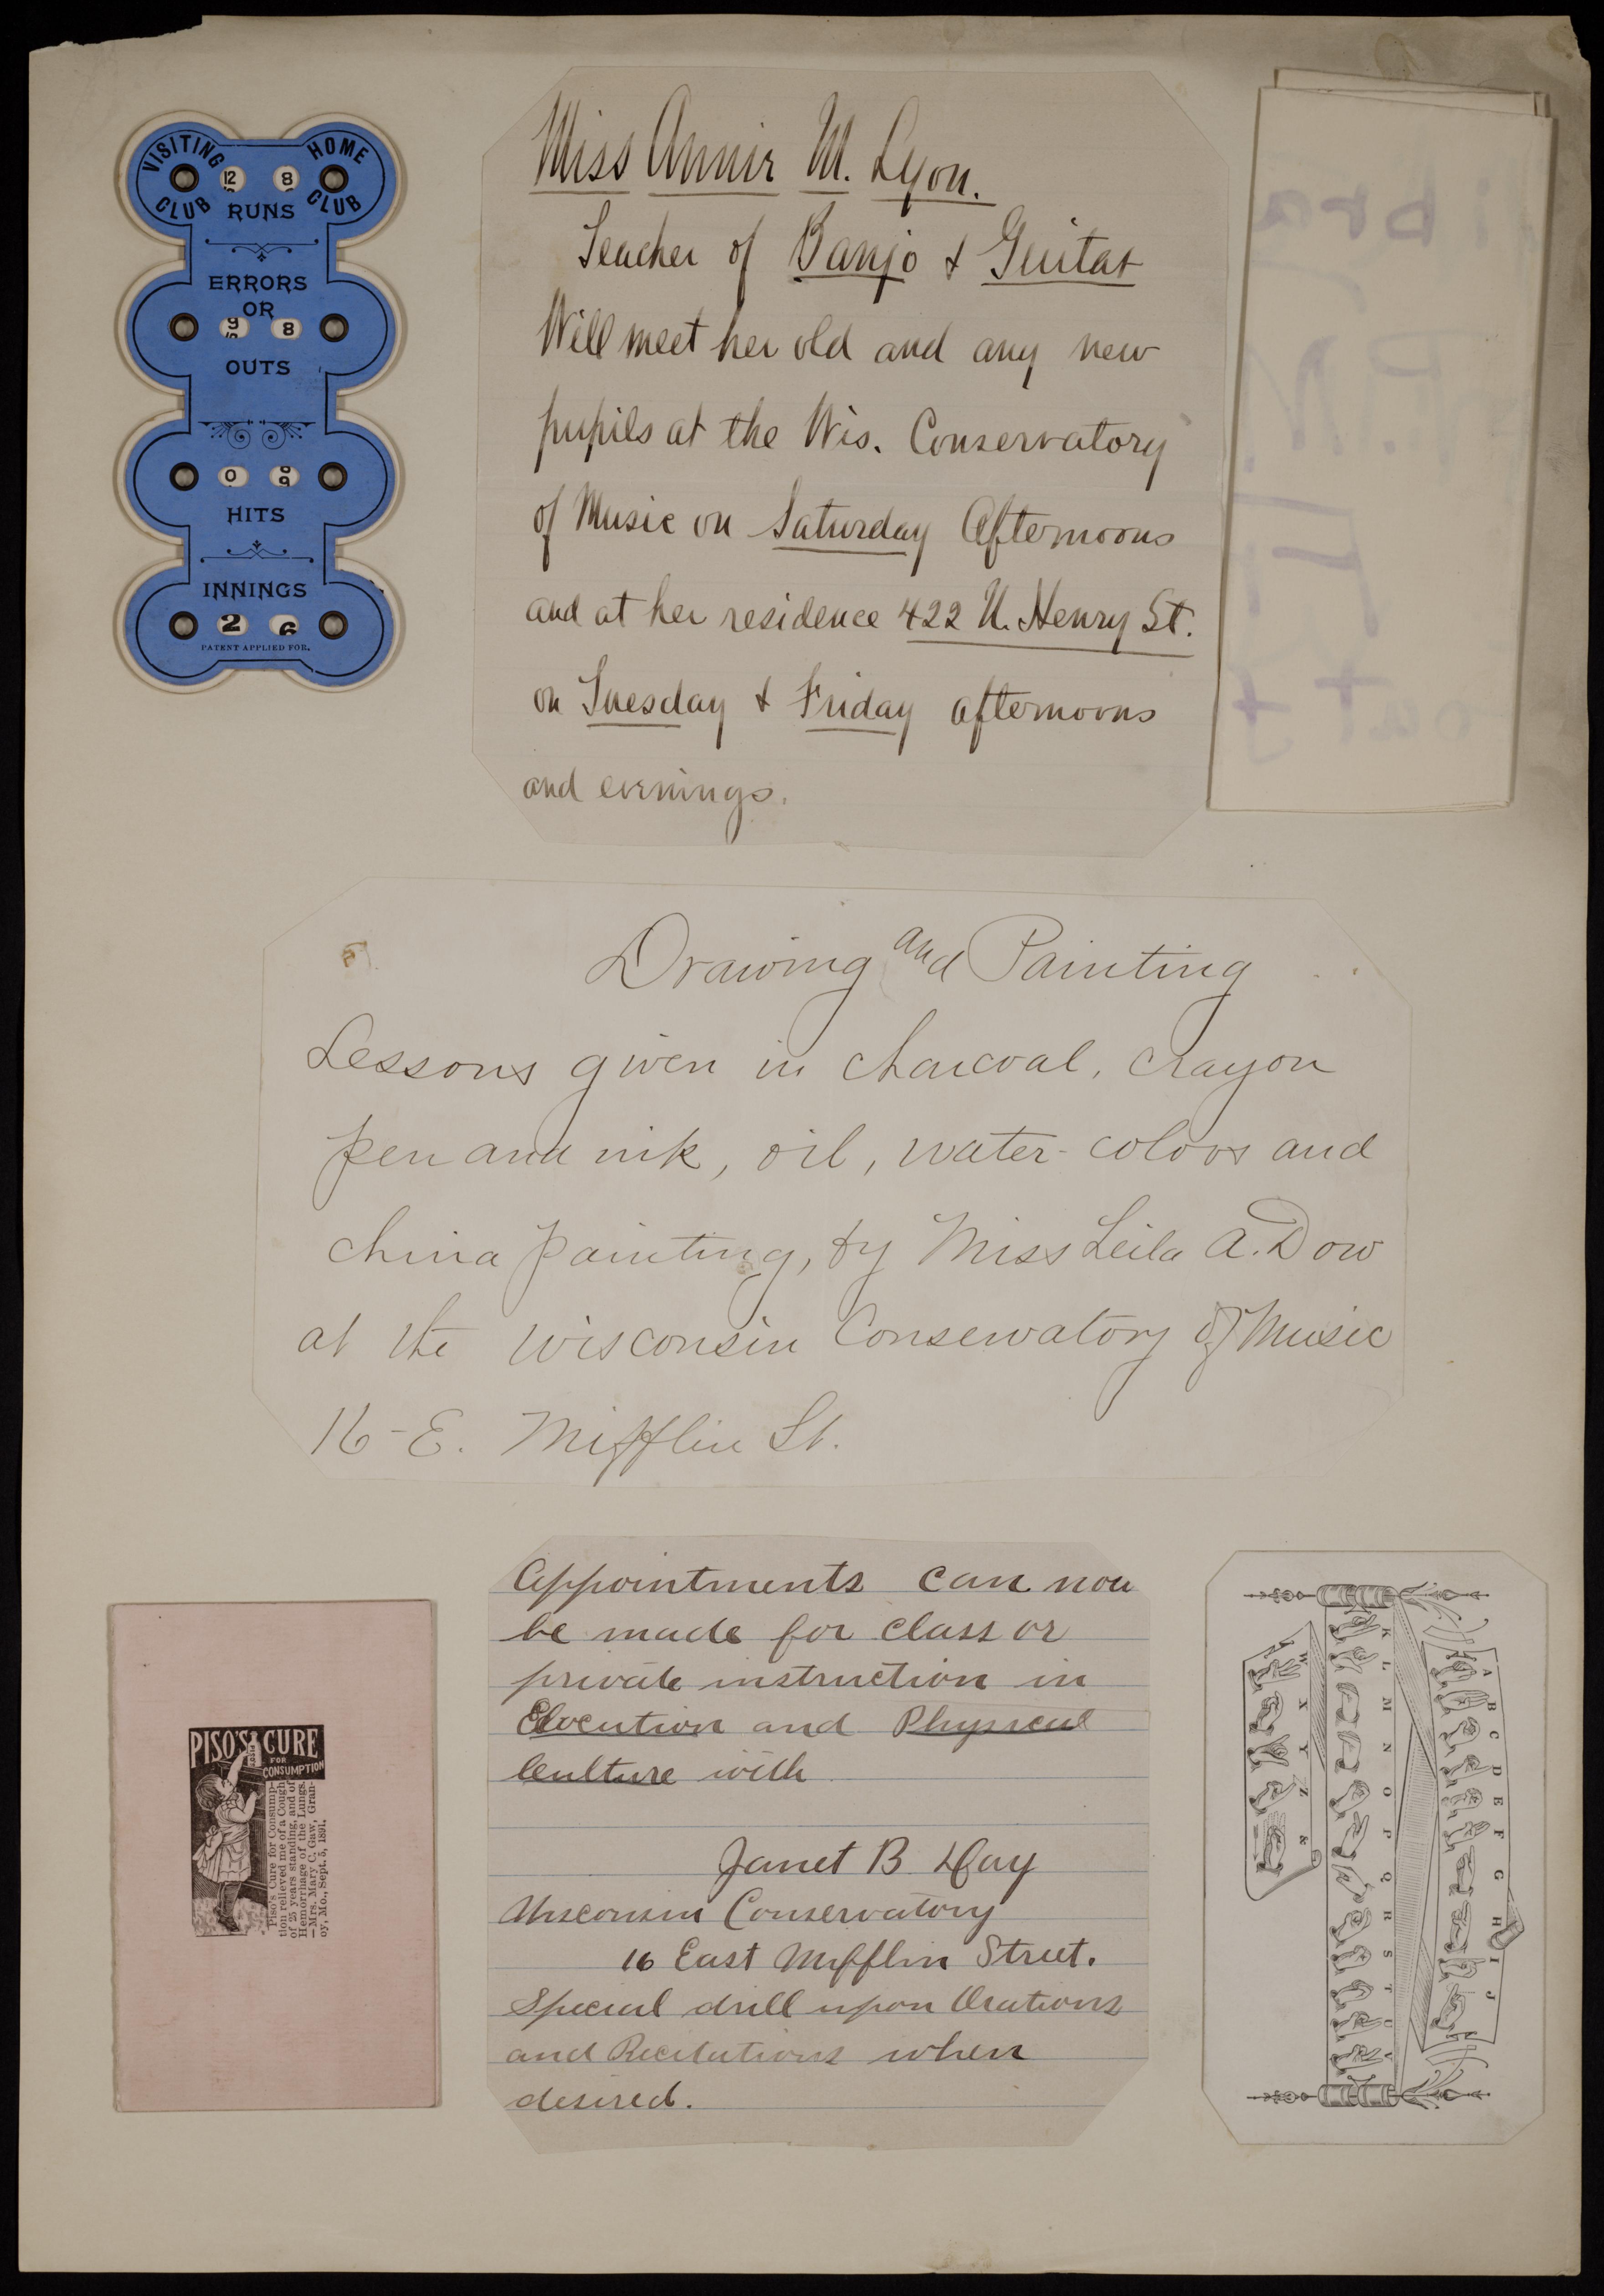 VISITING CLUB
HOME CLUB
12 8
RUNS
ERRORS
OR
9 8
OUTS
0
HITS
INNINGS
2 6
PATENT APPLIED FOR.
Miss Annie M. Lyon.
Teacher of Banjo & Guitar
Will meet her old and any new
pupils at the Wis. Conservatory
of Music on Saturday Afternoons
and at her residence 422 N. Henry St.
on Tuesday & Friday afternoons
and evenings.
Drawing and Painting
Lessons given in charcoal, crayon
pen and ink, oil, water-colors and
china painting, by Miss Leila A. Dow
at the Wisconsin Conservatory of Music
16 - E. Mifflin St.
PISO'S CURE
FOR
CONSUMPTION
Piso's Cure for Consump-
tion relieved me of a Cough
of 25 years standing, and of
Hemorrhage of the Lungs.
—Mrs. Mary C. Gaw, Gran-
by, Mo., Sept. 5, 1891.
Appointments can now
be made for class or
private instruction in
Elocution and Physical
Culture with
Janet B Day
Wisconsin Conservatory
16 East Mifflin Street.
Special drill upon Orations
and Recitations when
desired.
A B C D E F G H I J
K L M N O P Q R S T U V
W X Y Z &